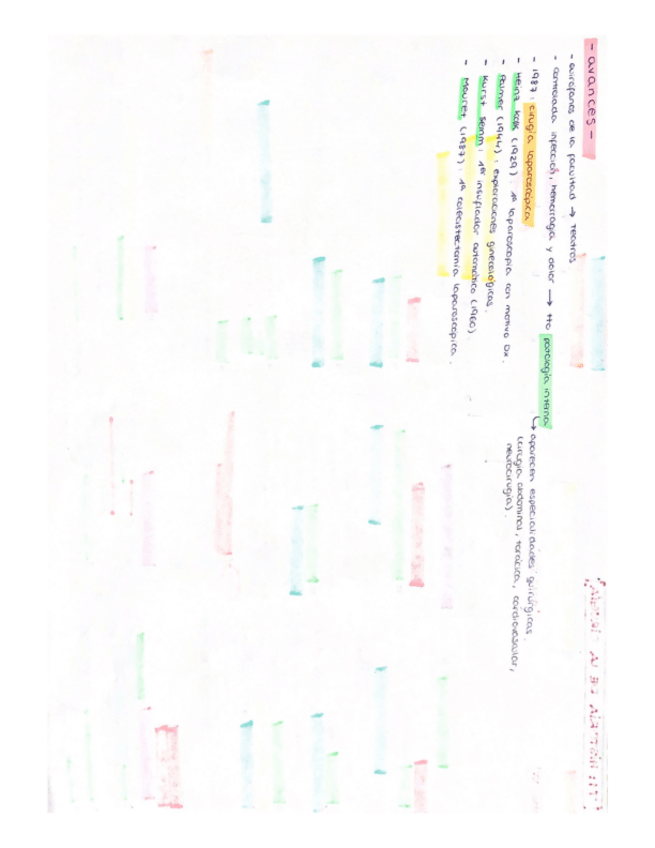 - avances -
- quirófanos de la facultad → teatros
- controlada infección, hemorragia y dolor → tto patología interna
↳ aparecen especialidades quirúrgicas
(cirugía abdominal, torácica, cardiovascular,
neurocirugía).
- 1987: cirugía laparoscópica
- Heinz Kalk (1929): 1ª laparoscopia con motivo Dx.
- Palmer (1944): exploraciones ginecológicas.
- Kurst Semm: 1er insuflador automático (1960).
- Mouret (1987): 1ª colecistectomía laparoscópica.